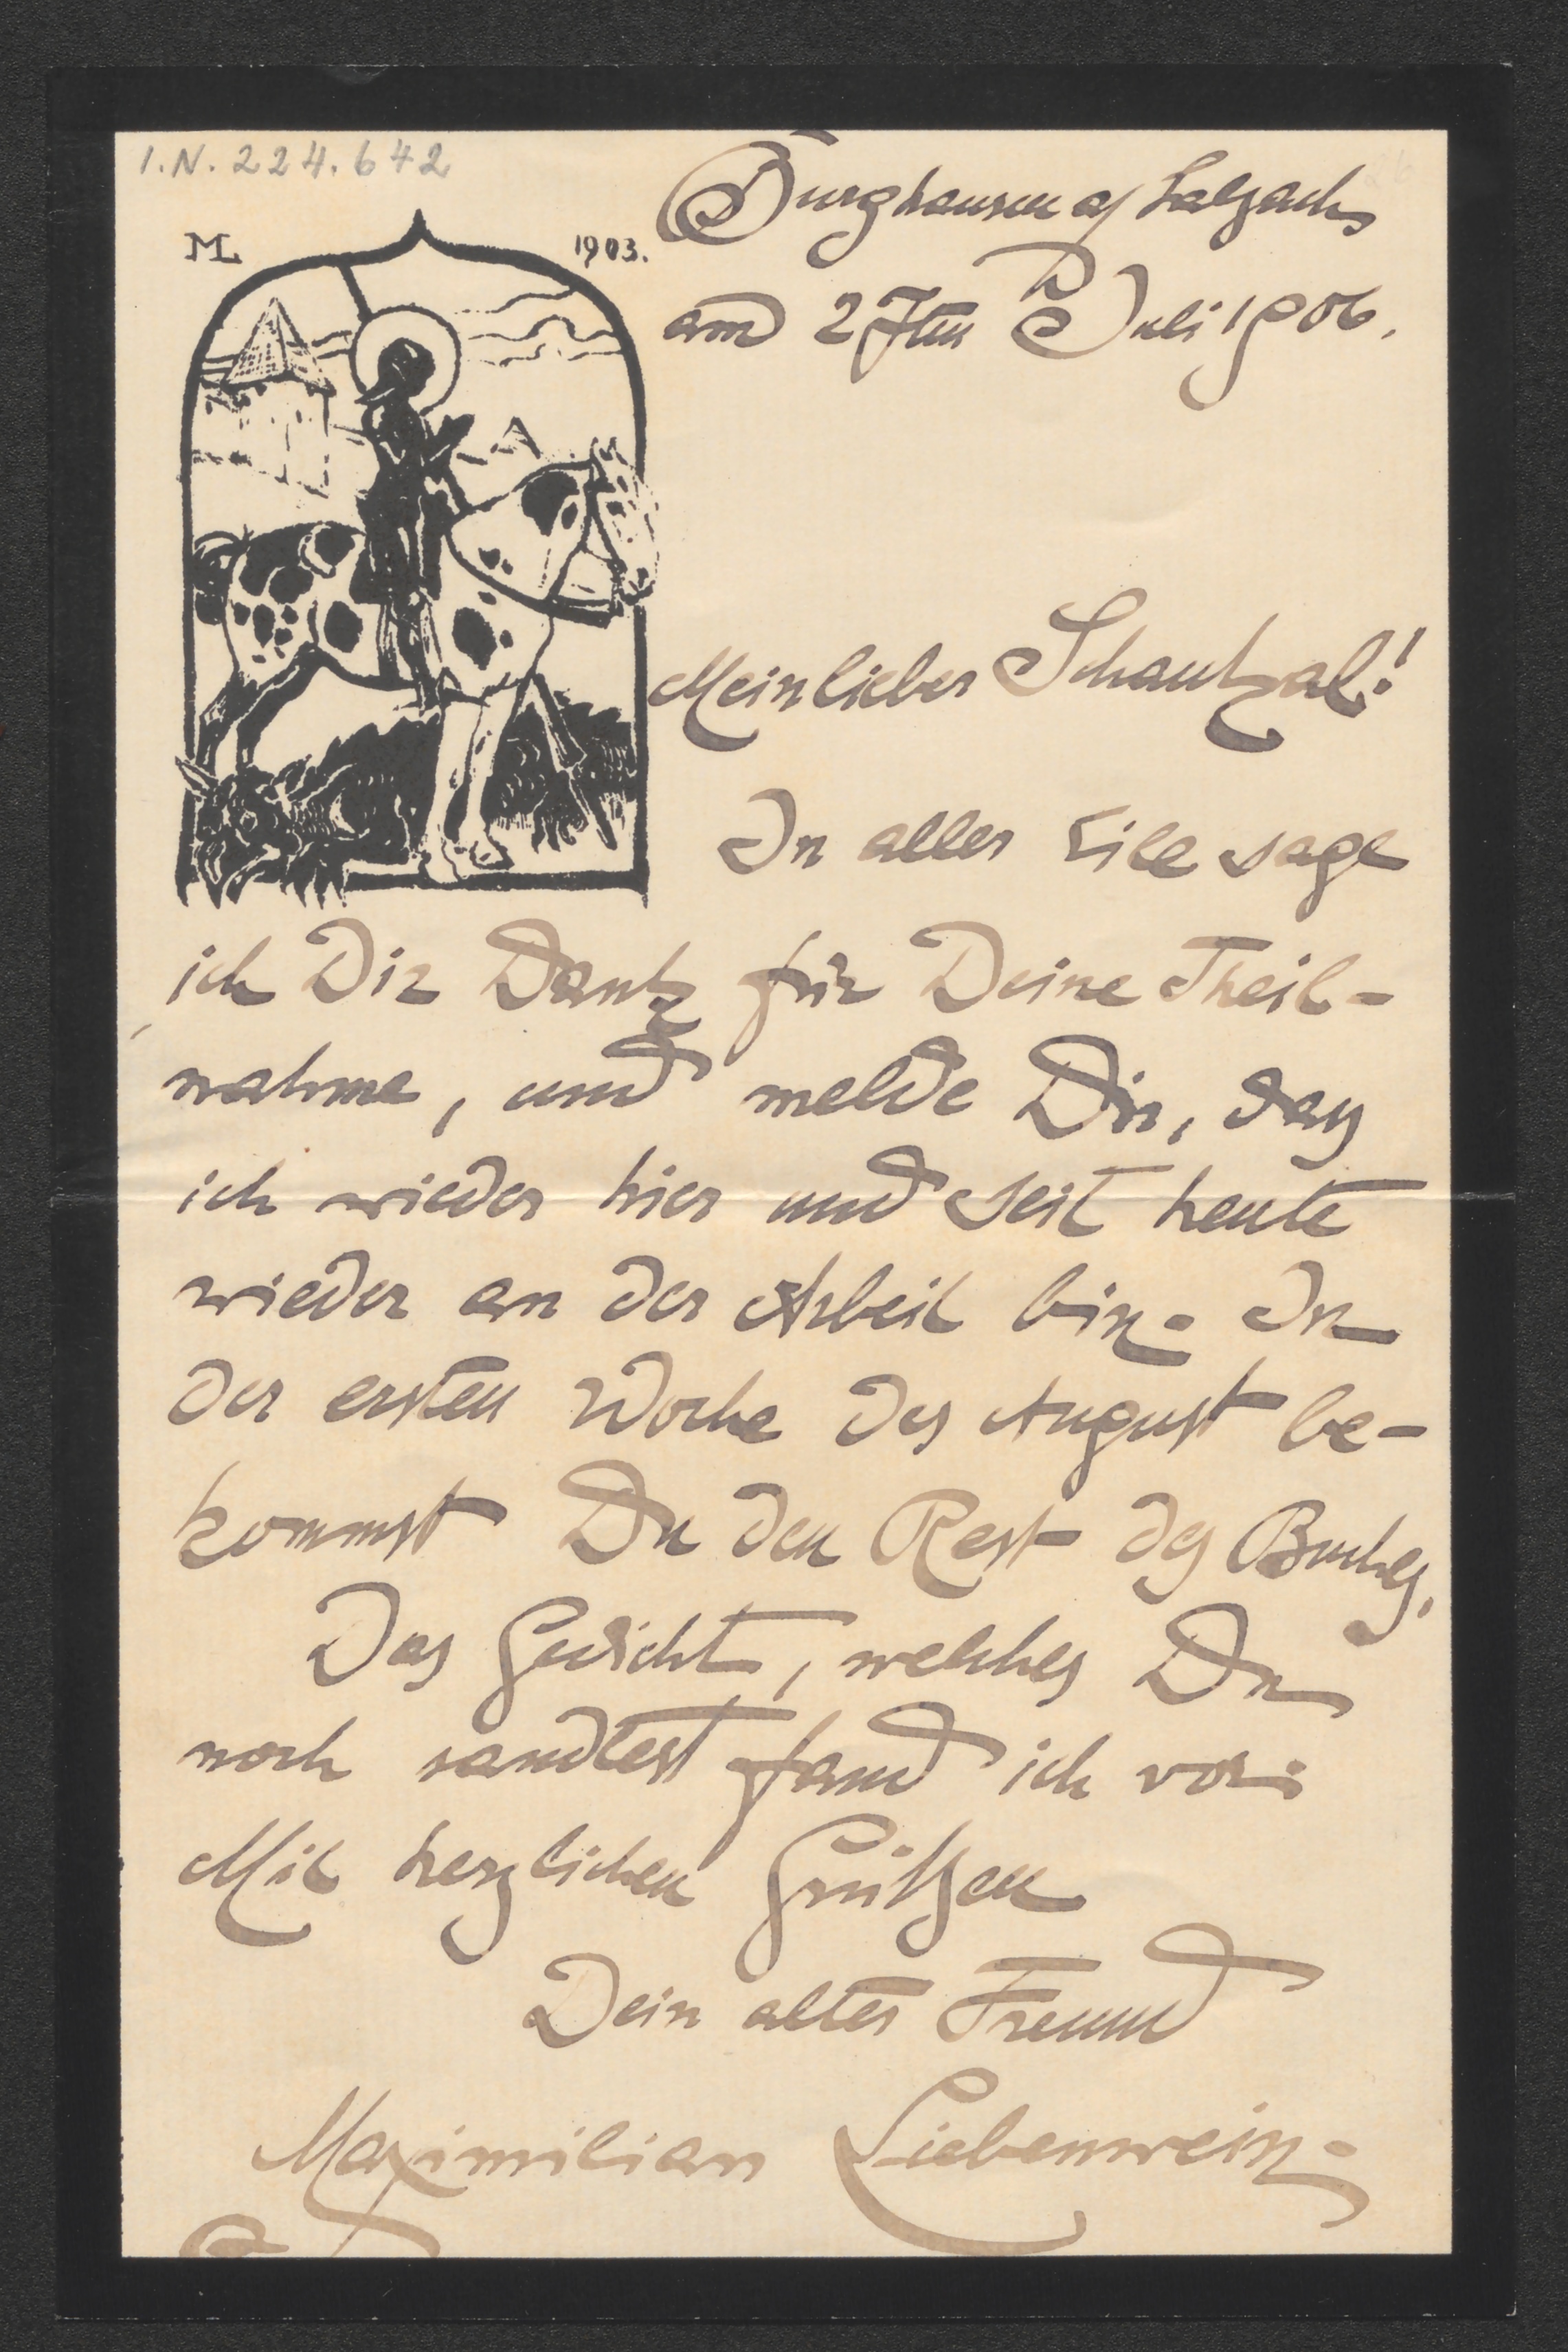 I.N. 224.642
ML 1903.
Burghausen a/ Salzach
am 27ten Juli 1906.
Mein lieber Schaukal!
In aller Eile sage
ich Dir Dank für Deine Theil-
nahme, und melde Dir, daß
ich wieder hier und seit heute
wieder an der Arbeit bin. In
der ersten Woche des August be-
kommst Du den Rest des Buches.
Das Gedicht, welches Du
noch sandtest fand ich vor.
Mit herzlichen Grüßen
Dein alter Freund
Maximilian Liebenwein.